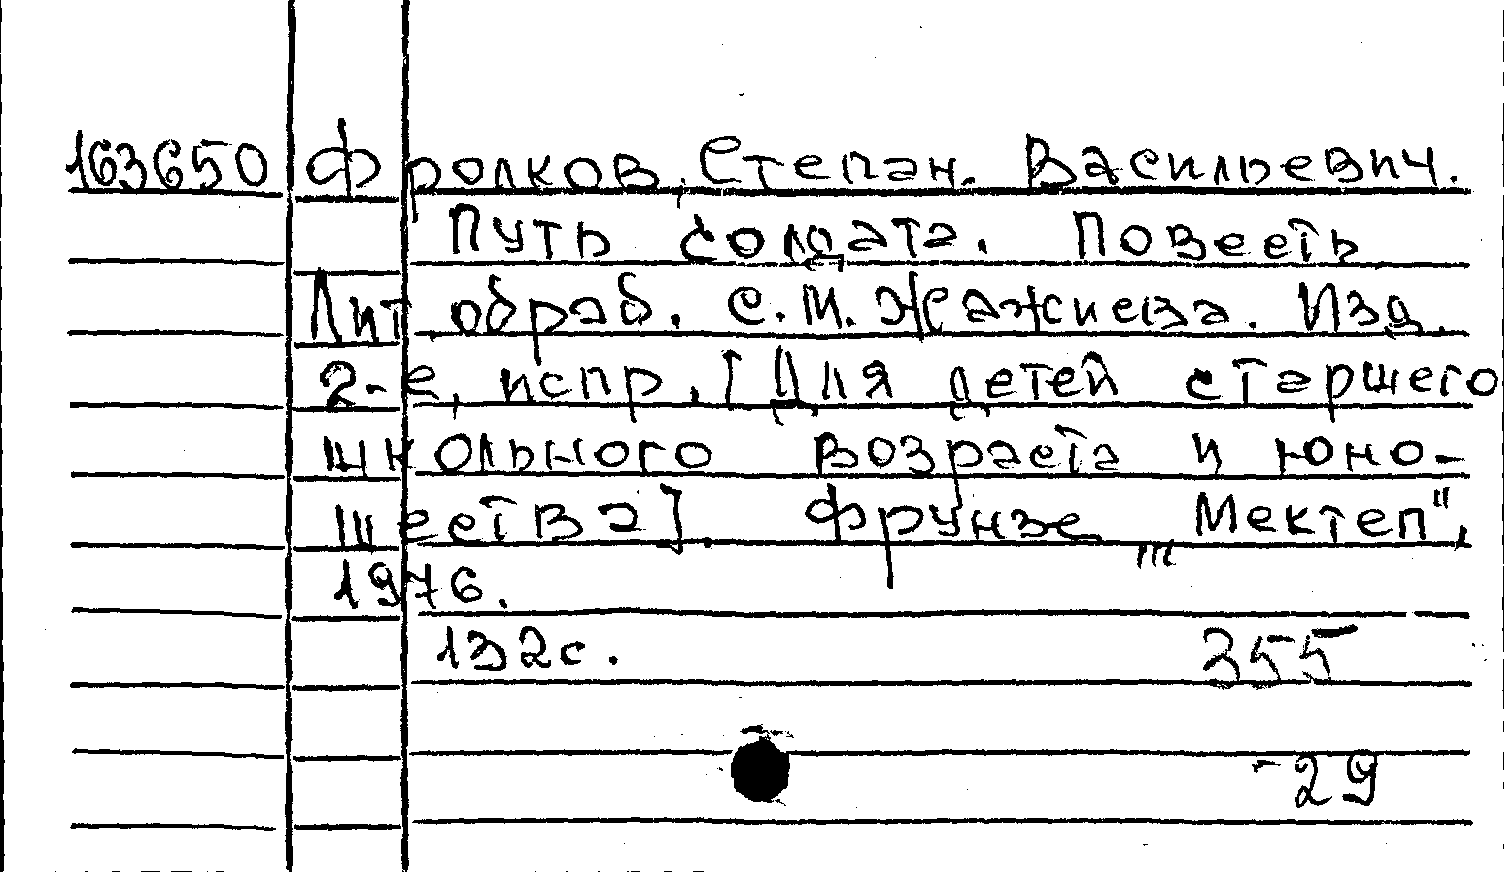 163650 Фролков, Степан. Васильевич.
Путь солдата. Повесть
Лит. обраб. С. М. Жажиева. Изд.
2-е, испр. [Для детей старшего
школьного возраста и юно-
шества]. Фрунзе „Мектеп",
1976.
132с. 355
29